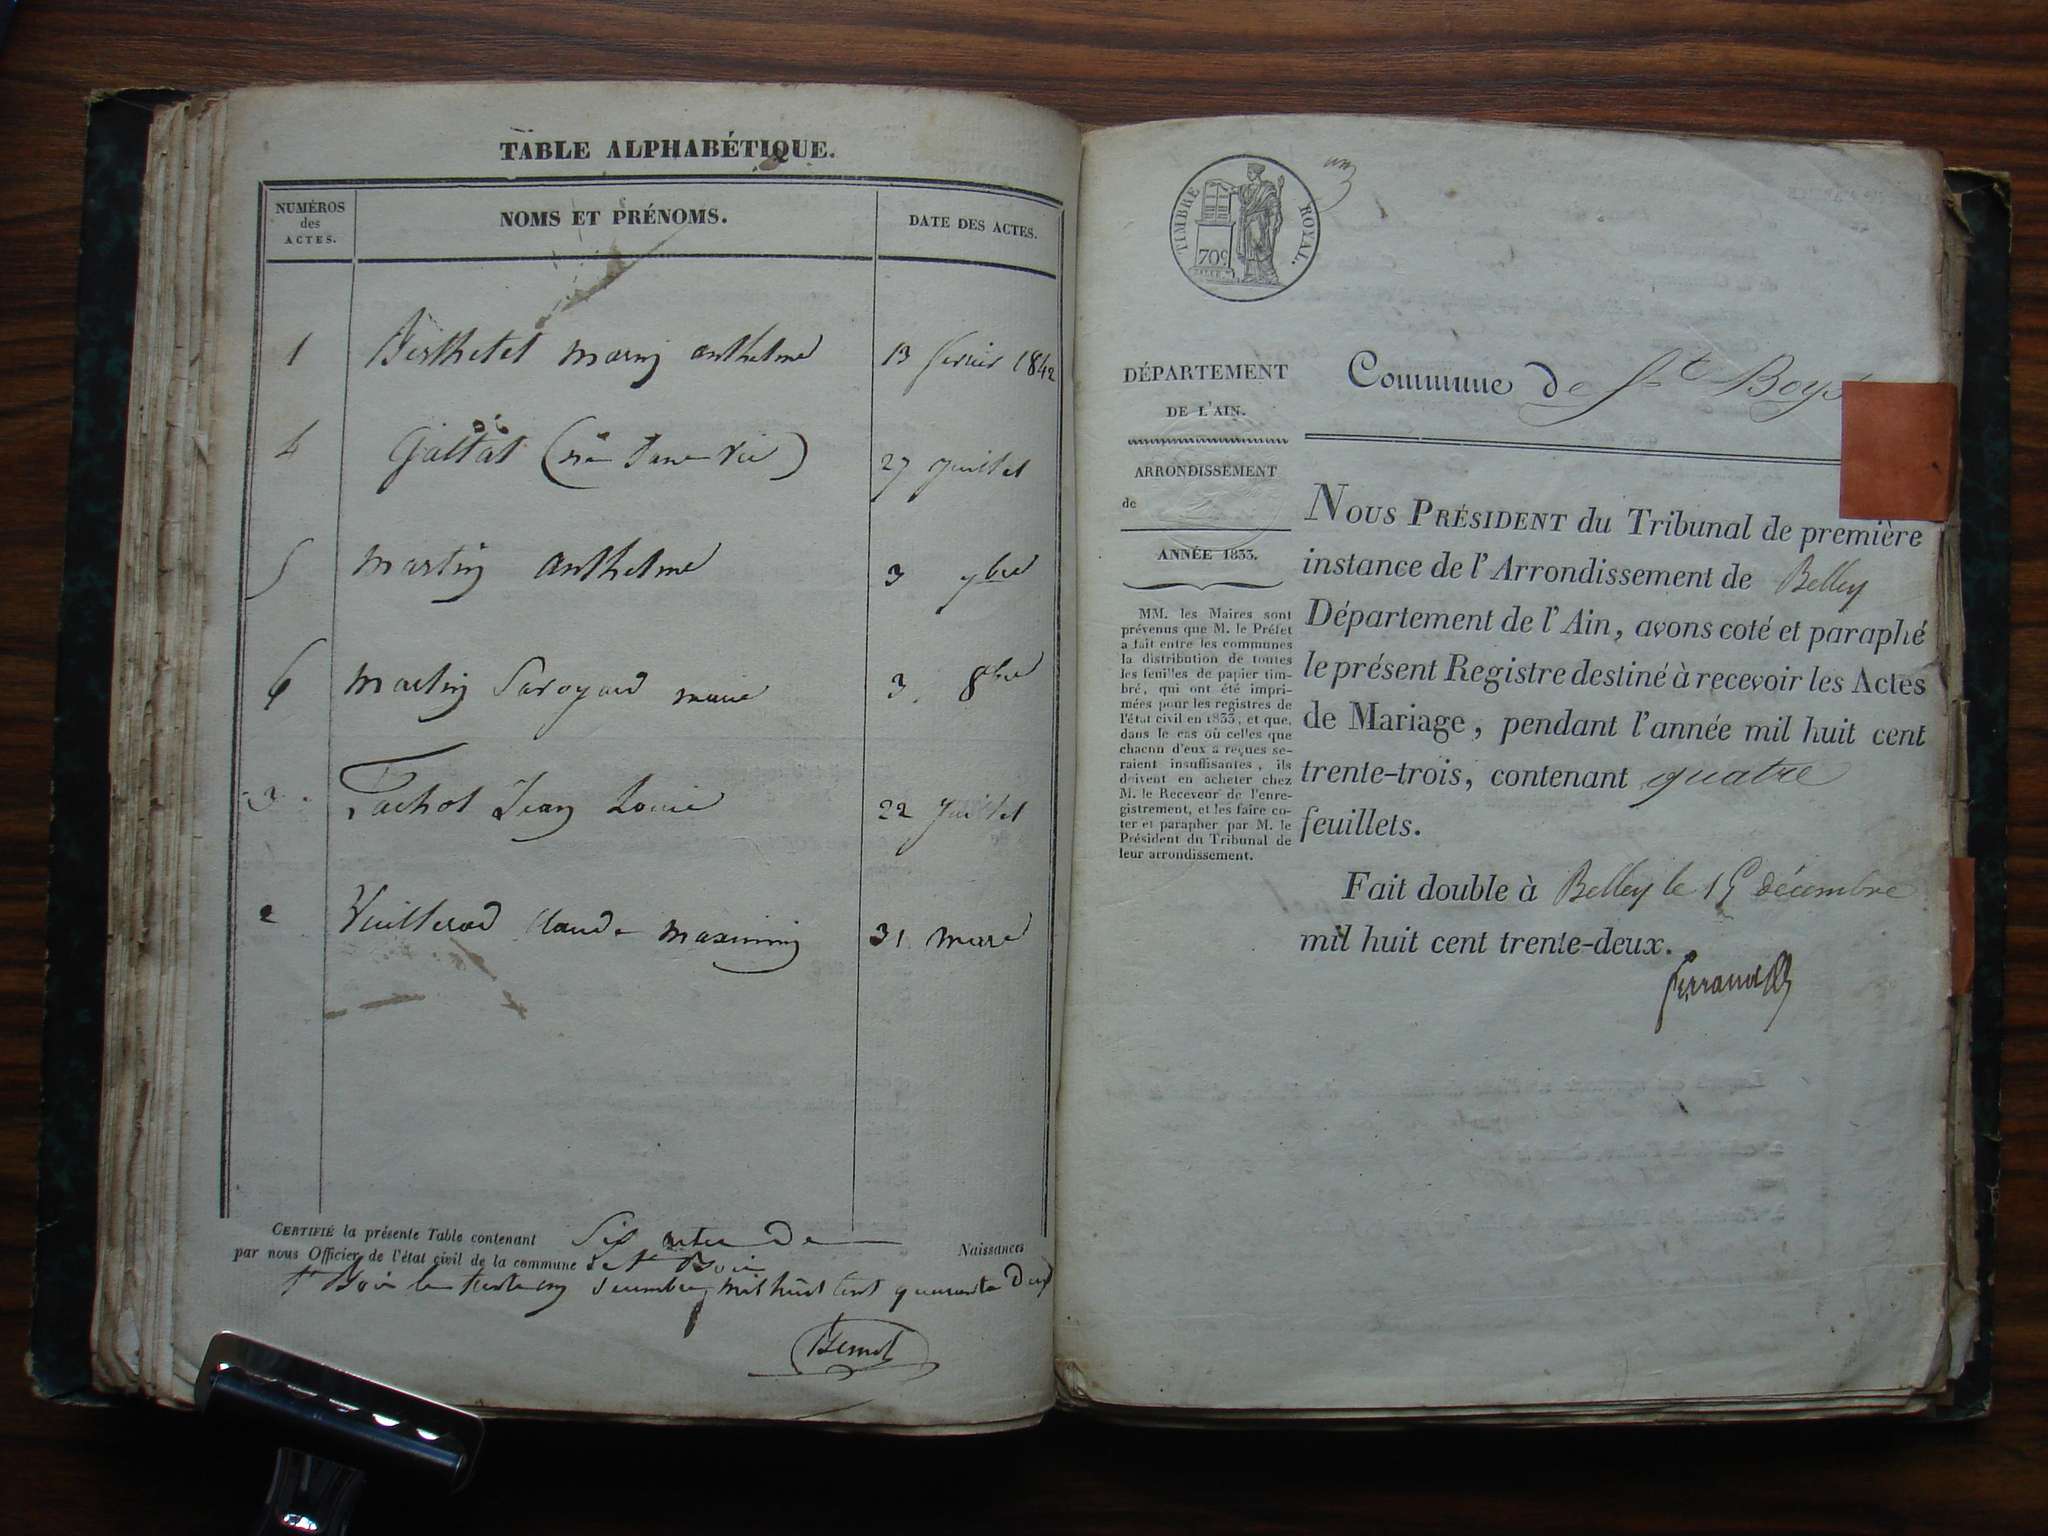 TABLE ALPHABÉTIQUE.
NUMÉROS
des
ACTES.
NOMS ET PRÉNOMS.
DATE DES ACTES.
1 Berthetet marin anthelme 13 fevrier 1842
4 27 juillet
5 martin anthelme 3 7bre
6 martin Savoyard marie 3 8bre
3 Pachot Jean Louis 22 juillet
2 Claude maximin 31 mars
CERTIFIÉ la présente Table contenant Six actes de Naissances
par nous Officier de l'état civil de la commune de St Bois
St Bois le mil huit cent quarante Deux
TIMBRE ROYAL.
70c
DÉPARTEMENT
DE L'AIN.
ARRONDISSEMENT
de
ANNÉE 1833.
MM. les Maires sont
prévenus que M. le Préfet
a fait entre les communes
la distribution de toutes
les feuilles de papier tim-
bré, qui ont été impri-
mées pour les registres de
l'état civil en 1833, et que,
dans le cas où celles que
chacun d'eux a reçues se-
raient insuffisantes, ils
doivent en acheter chez
M. le Receveur de l'enre-
gistrement, et les faire co-
ter et parapher par M. le
Président du Tribunal de
leur arrondissement.
Commune de St Boys
NOUS PRÉSIDENT du Tribunal de première
instance de l'Arrondissement de Belley
Département de l'Ain, avons coté et paraphé
le présent Registre destiné à recevoir les Actes
de Mariage, pendant l'année mil huit cent
trente-trois, contenant quatre
feuillets.
Fait double à Belley le 15 décembre
mil huit cent trente-deux.